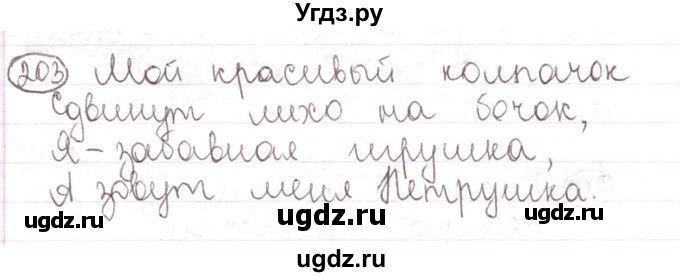 Угдз.ру
203 Мой красивый колпачок
Сдвинут лихо на бочок,
Я - забавная игрушка,
А зовут меня Петрушка.
ugdz.ru ugdz.ru ugdz.ru
ugdz.ru ugdz.ru